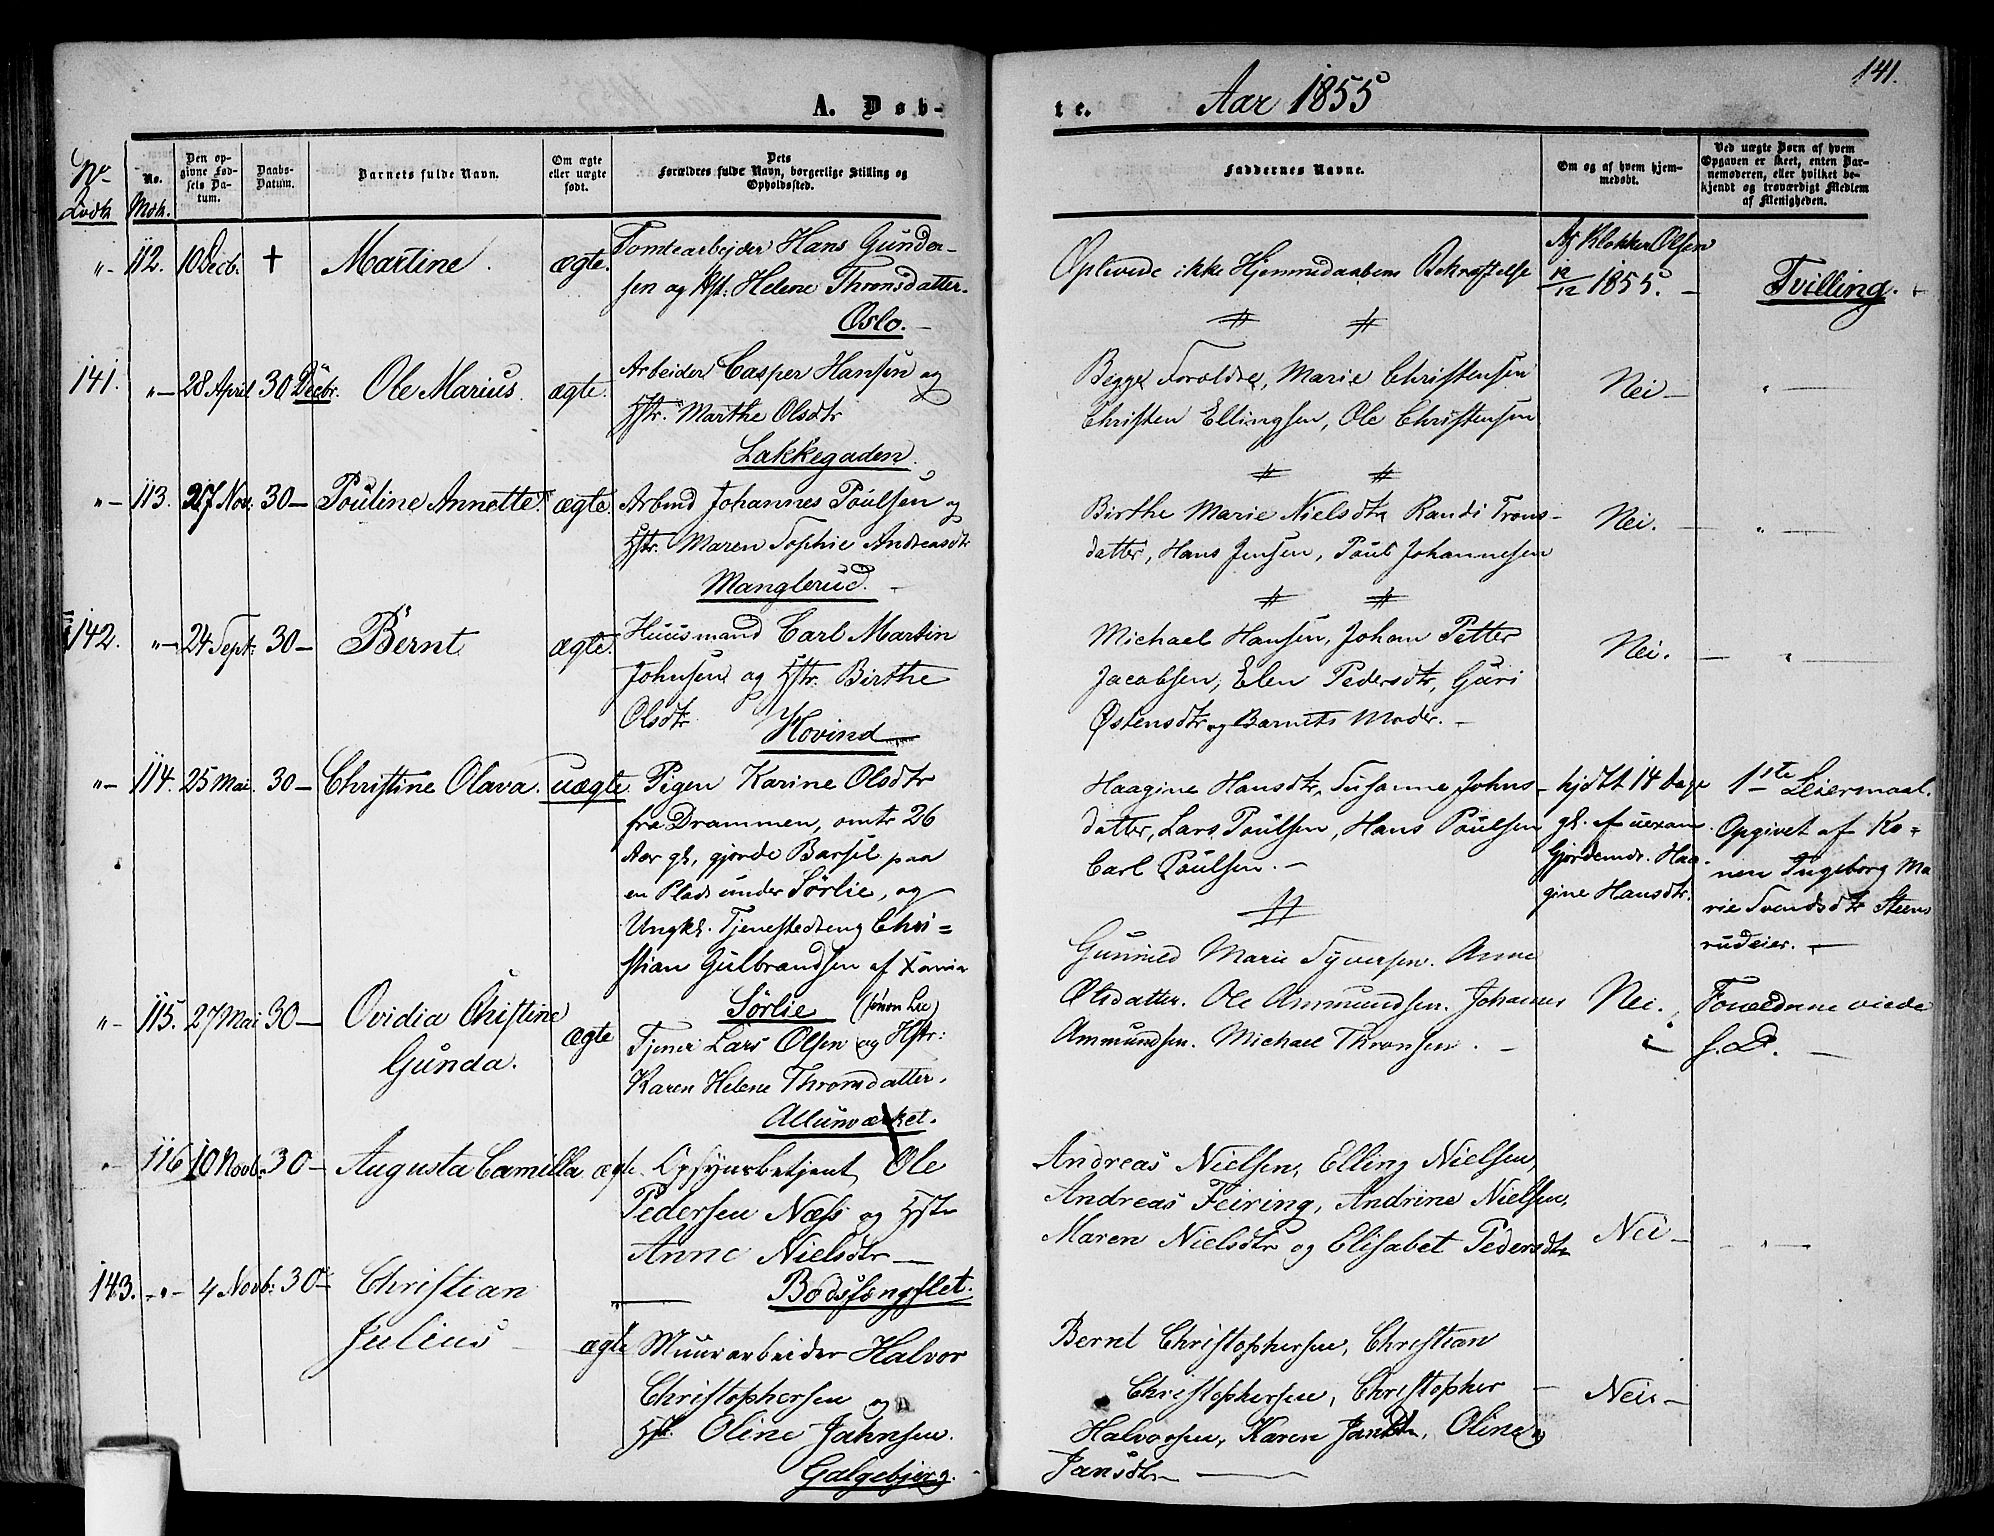 141.
A. Døb-
te.
Aar 1855
No
Lødk
No.
Mdk.
Den op-
givne Fød-
sels Da-
tum.
Daabs-
Datum.
Barnets fulde Navn.
Om ægte
eller uægte
født.
Dets
Forældres fulde Navn, borgerlige Stilling og
Opholdssted.
Faddernes Navne.
Om og af hvem hjem-
medøbt.
Ved uægte Børn af hvem
Opgaven er skeet, enten Bar-
nemoderen, eller hvilket be-
kjendt og troværdigt Medlem
af Menigheden.
"- 112. 10 Decb. † Martine. ægte.
Tomtearbejder Hans Gunder-
sen og Hst: Helene Thronsdatter.
Oslo.-
Oplevede ikke Hjemmedaabens Bekræftelse
Af Klokker Olsen
12/12 1855.-
Tvilling.
141. "- 28 April 30 Decbr. Ole Marius. ægte.
Arbeider Casper Hansen og
Hstr. Marthe Olsdtr
Lakkegaden.
Begge Forældre, Marie Christensen
Christen Ellingsen, Ole Christensen
Nei- "-
"- 113. 27 Nov: 30- Pouline Annette. ægte.
Arbmd Johannes Poulsen og
Hstr. Maren Sophie Andreasdtr
Manglerud.-
Birthe Marie Nielsdtr Randi Trons-
datter, Hans Jensen, Poul Johannesen
Nei. "-
142. "- 24 Sept: 30- Bernt ægte.
Huusmand Carl Martin
Johnsen og Hstr. Birthe
Olsdtr Hovind
Michael Hansen, Johan Petter
Jacobsen, Elen Pedersdtr, Guri
Østensdtr og Barnets Moder.-
Nei. - "-
"- 114. 25 Mai. 30- Christine Olava. uægte.
Pigen Karine Olsdtr
fra Drammen, omtr 26
Aar gl, gjorde Barsel paa
en Plads under Sørlie, og
Ungkl. Tjenestedreng Chri=
stian Gulbrandsen af
Sørlie
Haagine Hansdtr, Susanne Johns-
datter, Lars Poulsen, Hans Poulsen
Carl Poulsen.-
hjdbt 14 dage
gl. af uexam
Gjordemdr. Haa-
gine Hansdtr.
1ste Leiermaal.
Opgivet af Ko-
nen Ingeborg Ma
rie Svendsdtr Steens
rudeier.-
"- 115. 27 Mai 30- Ovidia Christine
Gunda. ægte
Tjener Lars Olsen og Hstr:
Karen Helene Thronsdatter.
Allunværket.
Gunnild Marie Syversen. Anne
Olsdatter. Ole Ammundsen. Johannes
Ammundsen. Michael Thronsen.-
Nei.
Forældrene viede
s. D.-
"- 116 10 Novb: 30- Augusta Camilla ægt.
Opsynsbetjent Ole
Pedersen Næss og Hstr
Anne Nielsdtr-
Bodsfængslet.
Andreas Nielsen, Elling Nielsen,
Andreas Feiring, Andrine Nielsen,
Maren Nielsdtr og Elisabet Pedersdtr
Nei- "-
143. -"- 4 Novb: 30- Christian
Julius- ægte
Muurarbeider Halvor
Christophersen og
Hst. Oline Jahnsen.
Galgebjerg.-
Bernt Christophersen, Christian
Christophersen, Christopher
Halvorsen, Karen Jansdtr, Oline
Jansdtr-
Nei-